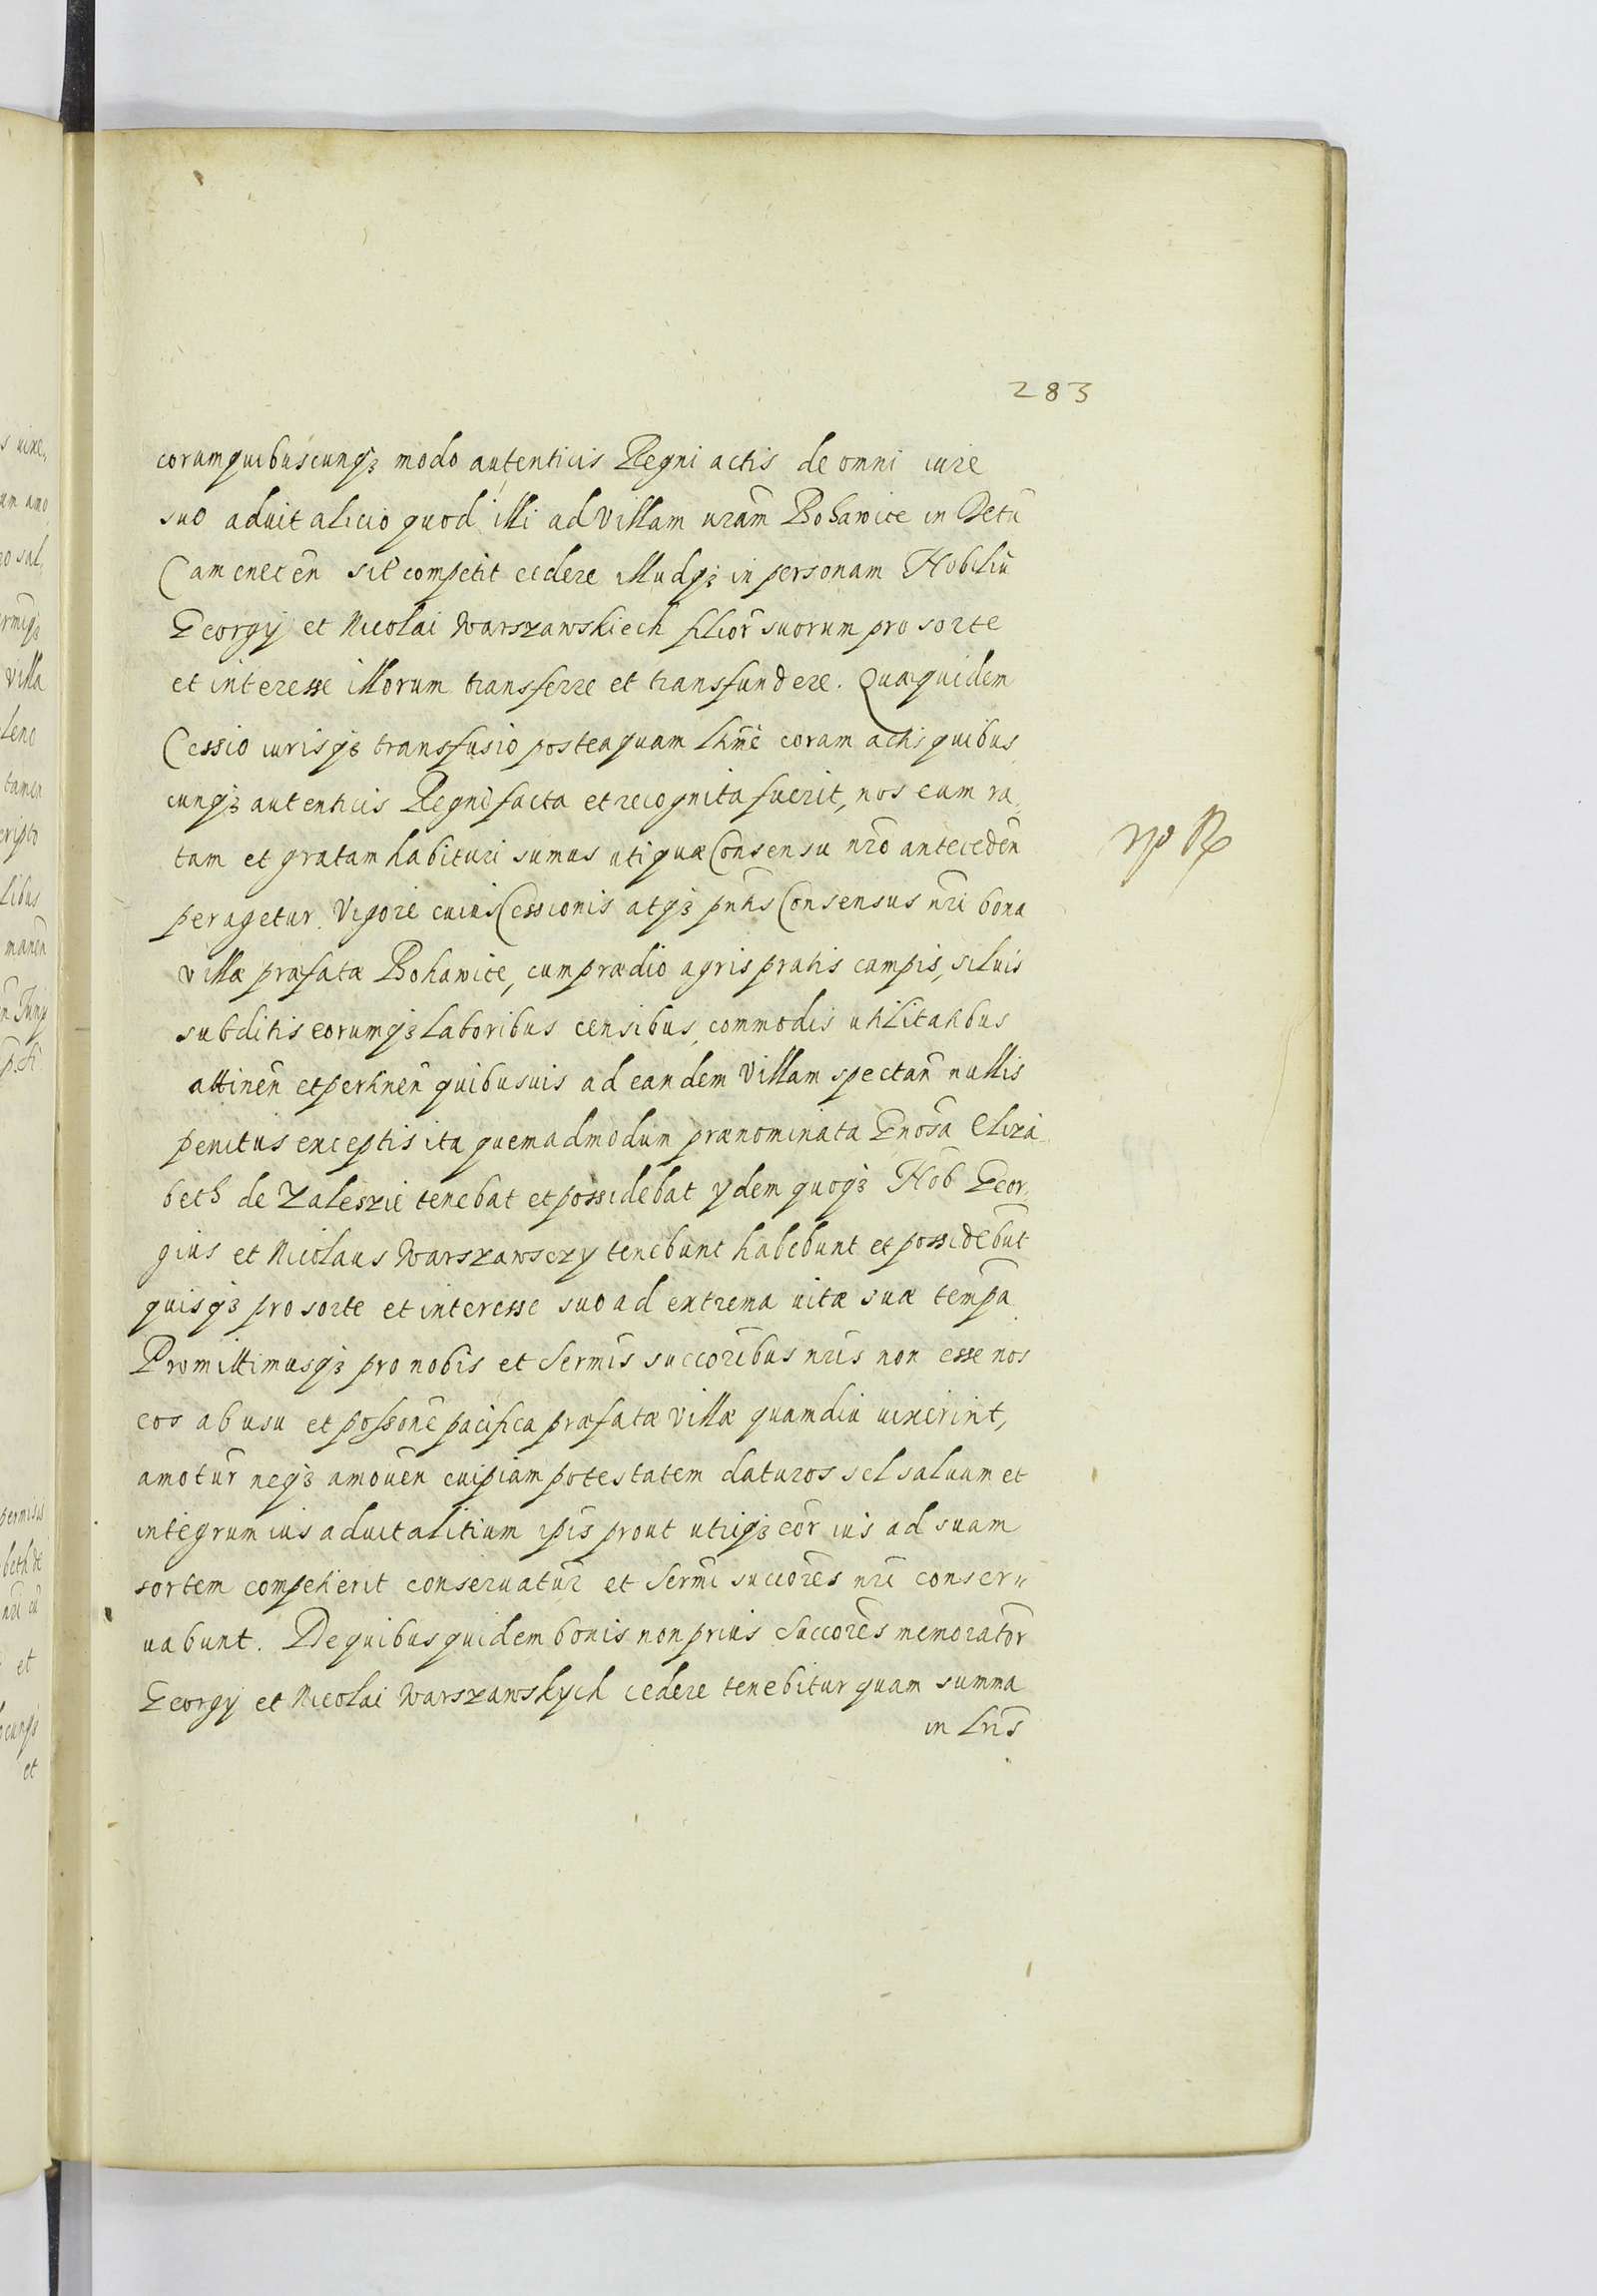 283
corumquibuscunqȝ modo autenticis Regni actis de omni iure
suo aduitalicio quod illi ad villam nr̃am Bohawice in Vctũ
Camenecen̄ sit̃ competit cedere illudqȝ in personam Nobiliũ
Georgÿ et Nicolai Warszawskiech filior̃ suorum pro sorte
et interesse illorum transferre et transfundere. Quæquidem
Cessio iurisqȝ transfusio posteaquam lr̃me coram actis quibus
cunqȝ autenticis Regni facta et recognita fuerit, nos eam ra,
tam et gratam habituri sumus uti quæ Consensu nr̃o anteceden̄
peragetur. Vigore cuius Cessionis atqȝ pn̄tis Consensus nr̃i bona
villæ præfatæ Bohawice, cum prædio agris pratis campis, siluis
subditis eorumqȝ laboribus censibus, commodis utilitatibus
attinen̄ et pertinen̄ quibusuis ad eandem villam spectan̄ nullis
penitus exceptis ita quemadmodum prænominata Gnosa Eliza
beth de Zaleszie tenebat et possidebat ydem quoqȝ Nob Geor,
gius et Nicolaus Warszawsczy tenebunt habebunt et possidebũt
quisqȝ pro sorte et interesse suo ad extrema uitæ suæ temp̄a
Promittimusqȝ pro nobis et Sermis succoribus nr̃is non esse nos
eos ab usu et possone pacifica præfatæ villæ quamdiu uixerint,
amotur̃ neqȝ amouen̄ cuipiam potestatem daturos sel saluum et
integrum ius aduitalitium ip̄is prout utriqȝ eor̃ ius ad suam
sortem competierit conseruatur̃ et Sermi succores nr̃i conser„
uabunt. De quibus quidem bonis non prius Succores memorator̃
Georgÿ et Nicolai Warszawskych cedere tenebitur quam summa
in lr̃is